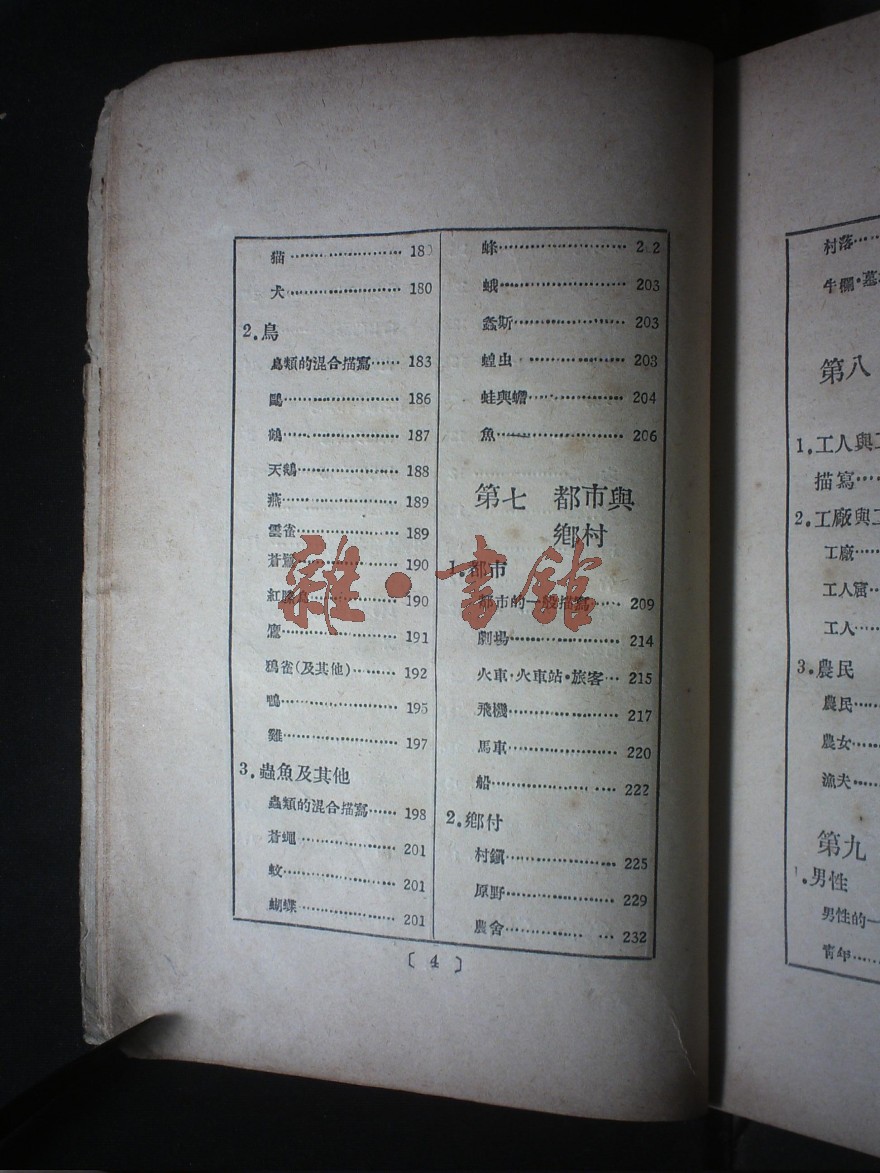 猫…………………… 180
犬…………………… 180
2.鳥
鳥類的混合描寫…… 183
鷗…………………… 186
鶴…………………… 187
天鵝………………… 188
燕…………………… 189
雲雀………………… 189
蒼鷺………………… 190
紅膝鳥……………… 190
鷹…………………… 191
鴉雀(及其他)……… 192
鴨…………………… 195
雞…………………… 197
3.蟲魚及其他
蟲類的混合描寫…… 198
蒼蠅………………… 201
蚊…………………… 201
蝴蝶………………… 201
蜂…………………… 2 2
蛾…………………… 203
螽斯………………… 203
蝗虫………………… 203
蛙與蟾……………… 204
魚…………………… 206
第七 都市與
鄉村
1.都市
都市的一般描寫…… 209
劇場………………… 214
火車·火車站·旅客… 215
飛機………………… 217
馬車………………… 220
船…………………… 222
2.鄉付
村鎭………………… 225
原野………………… 229
農舍………………… 232
〔 4 〕
雜·書館
村落……
牛欄·墓
第八
1.工人與工
描寫……
2.工廠與工
工廠……
工人窟…
工人……
3.農民
農民……
農女……
漁夫……
第九
1.男性
男性的一
青年……